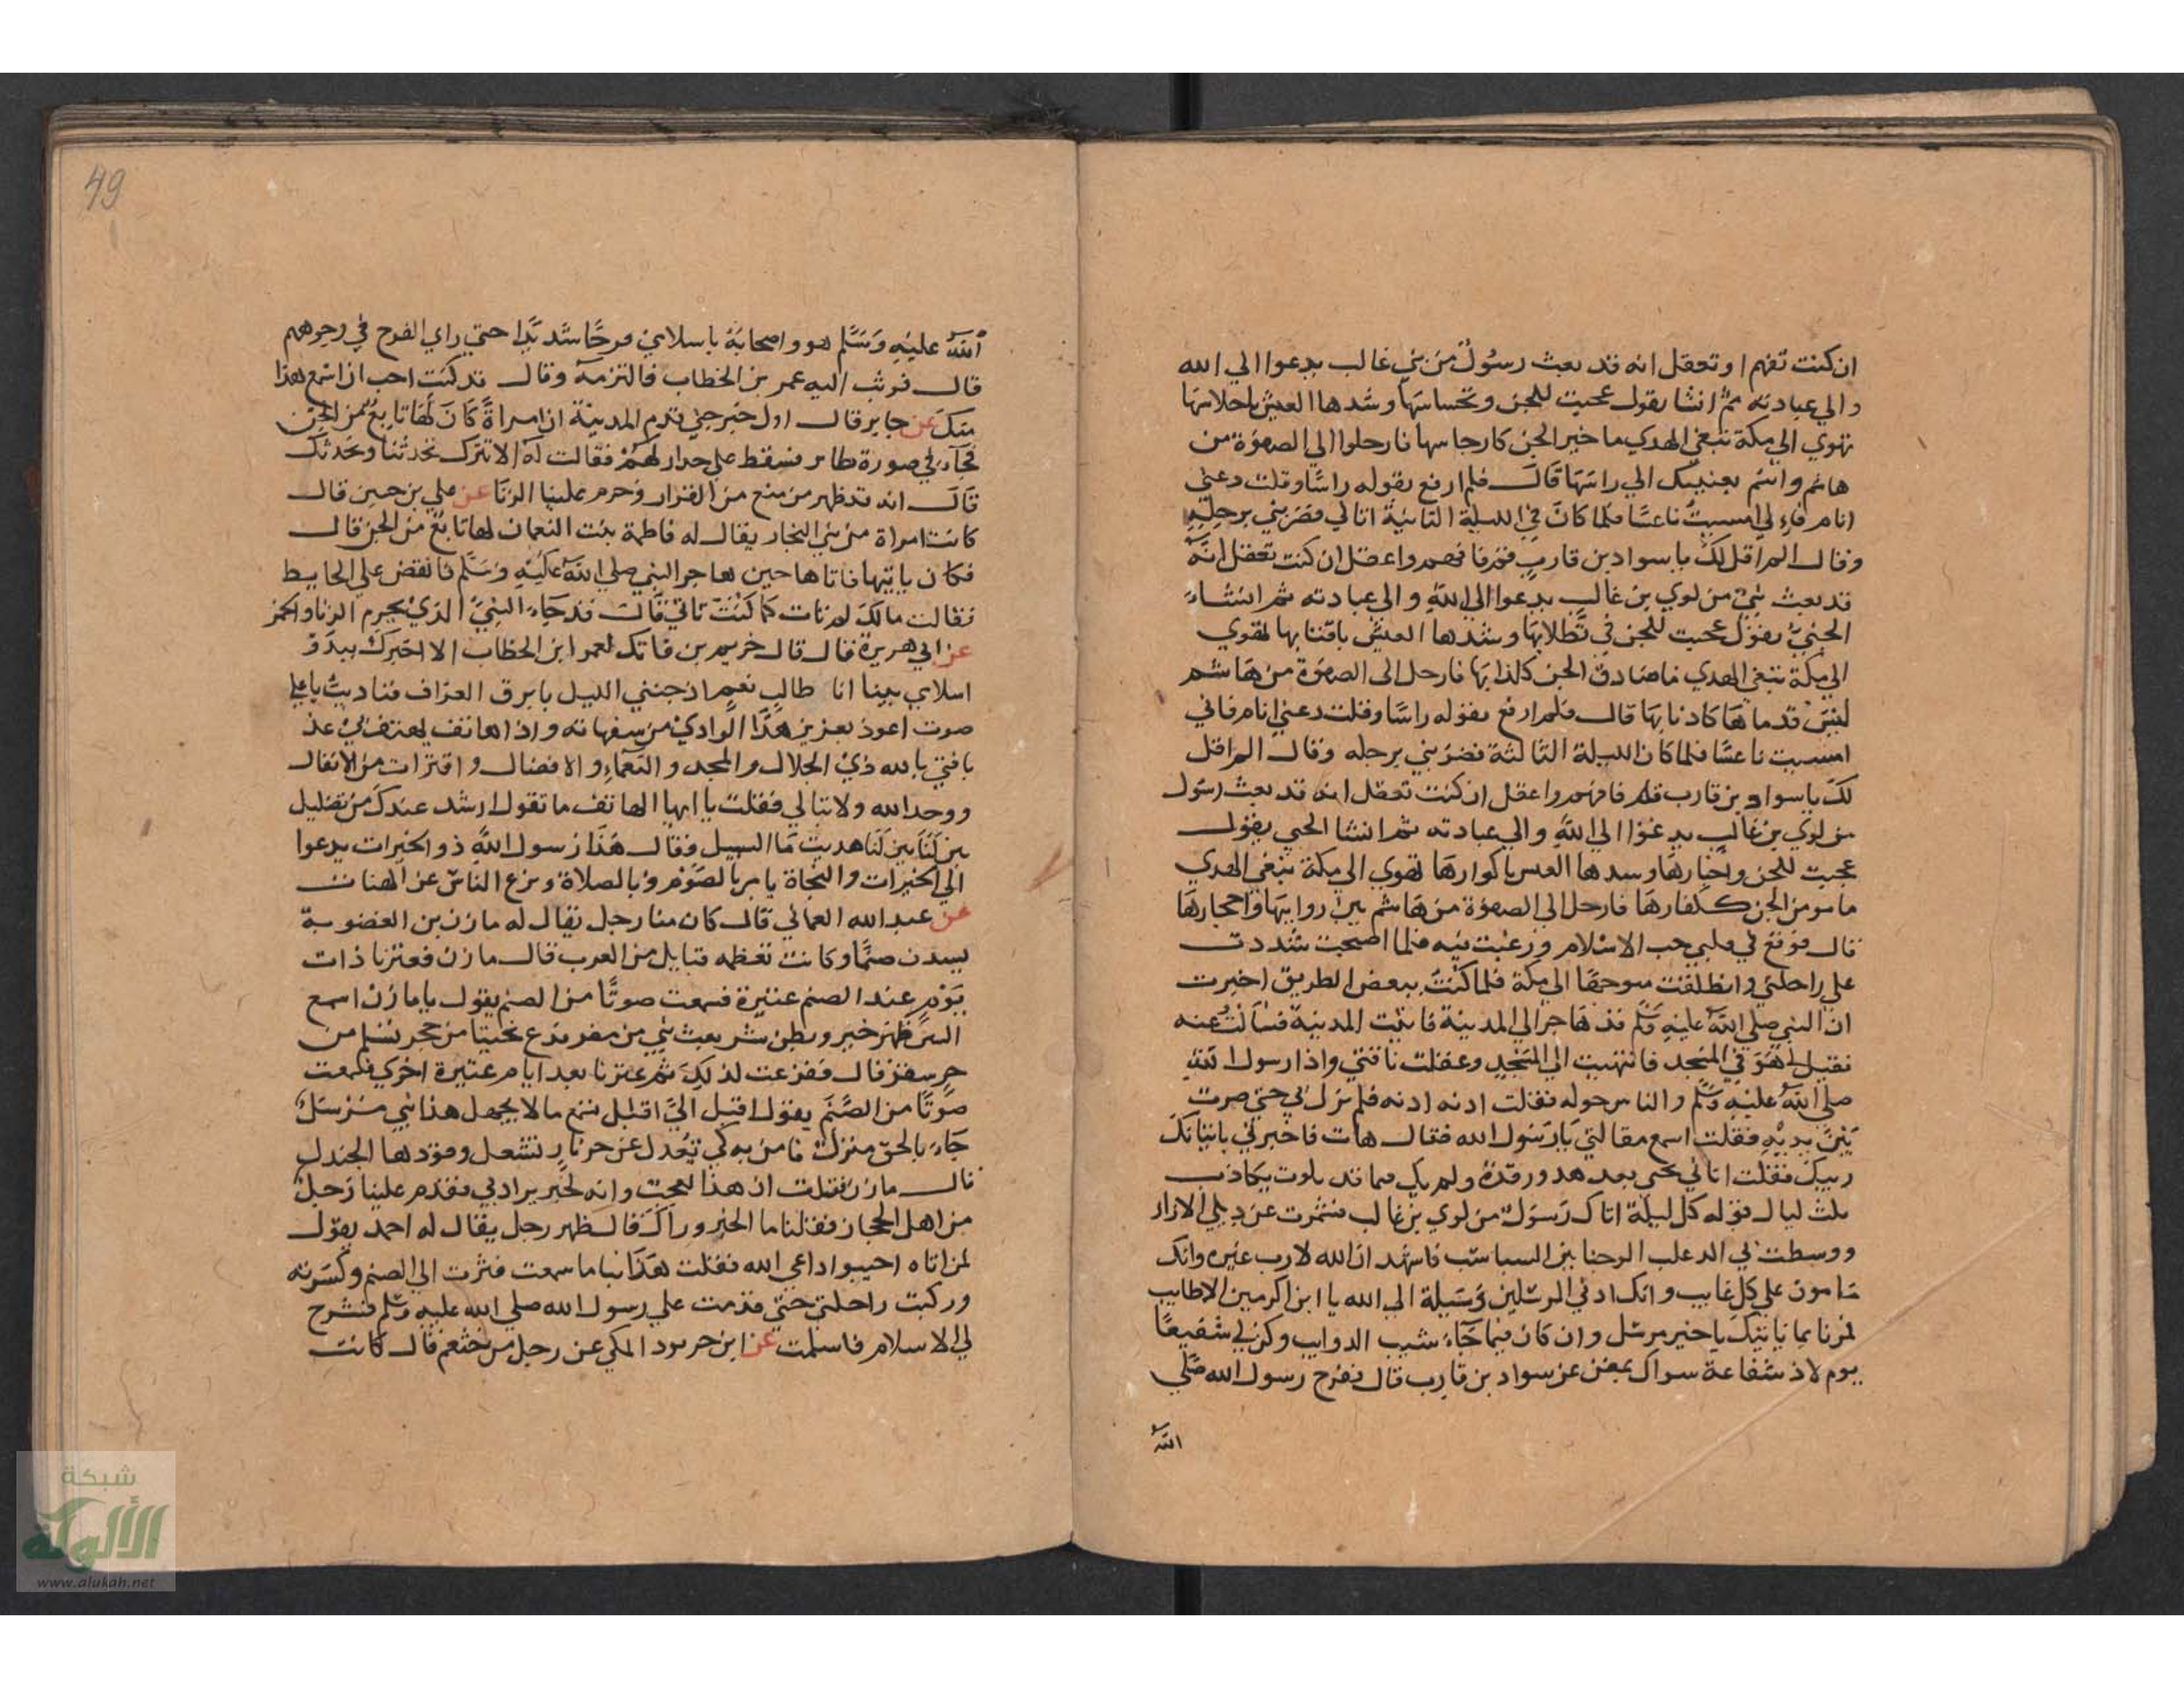 ان كنت تفهم او تعقل انه قد بعث رسول من بني غالب يدعوا الي الله
والي عبادته ثم انشا يقول عجبت للجن وتحساسها وشدها العيش باحلاسها
تهوي الي مكة تبغي الهدي ما خير الجن كارجاسها فارحلوا الي الصفوة من
هاشم واسم بعينيك الي راسها قال فلم ارفع بقوله راسا وقلت دعني
انام فاني امسيت ناعسا فلما كان في الليلة الثانية اتاني فضربني برجله
وقال الم اقل لك يا سواد بن قارب قم فافهم واعقل ان كنت تعقل انه
قد بعث نبي من لوي بن غالب يدعوا الي الله والي عبادته ثم انشاء
الجني يقول عجبت للجن في تطلابها وشدها العيش باقتابها تهوي
الي مكة تبغي الهدي ما صادق الجن كذابها فارحل الي الصفوة من هاشم
ليس قدماها كاذنابها قال فلم ارفع بقوله راسا وقلت دعني انام فاني
امسيت ناعسا فلما كان الليلة الثالثة فضربني برجله وقال الم اقل
لك يا سواد بن قارب قم فافهم واعقل ان كنت تعقل انه قد بعث رسول
من لوي بن غالب يدعوا الي الله والي عبادته ثم انشا الجني يقول
عجبت للجن واخبارها وسدها العيس باكوارها تهوي الي مكة تبغي الهدي
ما مومن الجن ككفارها فارحل الي الصفوة من هاشم بين روابيها واحجارها
قال فوقع في قلبي حب الاسلام ورغبت فيه فلما اصبحت شددت
علي راحلتي وانطلقت متوجها الي مكة فلما كنت ببعض الطريق اخبرت
ان النبي صلي الله عليه وسلم قد هاجر الي المدينة فاتيت المدينة فسالت عنه
فقيل لي هو في المسجد فانتهيت الي المسجد وعقلت ناقتي واذا رسول الله
صلي الله عليه وسلم والناس حوله فقلت ادنه ادنه فلم يزل بي حتي صرت
بين يديه فقلت اسمع مقالتي يا رسول الله فقال هات فاخبرني باتيانك
رييك فقلت اتاني نحيي بعد هدو ورقدة ولم يك فيما قد بلوت بكاذب
ثلث ليال قوله كل ليلة اتاك رسول من لوي بن غالب فشمرت عن ذيلي الازار
ووسطت بي الدعلب الوجنا بين السباسب فاشهد ان الله لا رب غيره وانك
مامون علي كل غايب وانك ادني المرسلين وسيلة الي الله يا ابن اكرمين الاطايب
فمرنا بما ياتيك يا خير مرسل وان كان فيما جاء شيب الذوايب وكن لي شفيعا
يوم لا ذ شفاعة سواك بمغن عن سواد بن قارب قال ففرح رسول الله صلي
الله
49
الله عليه وسلم هو واصحابه باسلامي فرحا شديدا حتي راي الفرح في وجوههم
قال فوثب اليه عمر بن الخطاب فالتزمه وقال قد كنت احب ان اسمع هذا
منك عن جابر قال اول خبر جي قدم المدينة ان امراة كان لها تابع من الجن
فجاء في صورة طاير فسقط علي جدار لهم فقالت له الا تترك تحدثنا ونحدثك
قال انه قد ظهر من منع من القرار وحرم علينا الزنا عن علي بن حسين قال
كانت امراة من بني النجار يقال له فاطمة بنت النعمان لها تابع من الجن قال
فكان ياتيها فاتاها حين هاجر النبي صلي الله عليه وسلم فانقض علي الحايط
فقالت مالك لم تات كما كنت تاتي قالت قد جاء النبي الذي يحرم الزنا والخمر
عن ابي هريرة قال قال خريم بن فاتك لعمر ابن الخطاب الا اخبرك ببدو
اسلامي بينا انا طالب نعم اذ جنني الليل بابرق العزاف فناديت باعلي
صوت اعوذ بعزيز هذا الوادي من سفهائه واذا هاتف يهتف بي عذ
يا فتي بالله ذي الجلال والمجد والنعماء والافضال واقتر ات من الانفال
ووحد الله ولا تبالي فقلت يا ايها الهاتف ما تقول ارشد عندك من تضليل
بين لنا بين لنا هديت ما السبيل فقال هذا رسول الله ذو الخيرات يدعوا
الي الخيرات والنجاة يامر بالصوم وبالصلاة وينزع الناس عن الهنات
عن عبد الله العماني قال كان منا رجل يقال له مازن بن العضوبة
يسدن صنما وكانت تعظمه قبايل من العرب قال مازن فعترنا ذات
يوم عند الصنم عتيرة فسمعت صوتا من الصنم يقول يا مازن اسمع
السر ظهر خير وبطن شر بعث نبي من مضر فدع نحيتا من حجر تسلم من
حر سقر قال ففزعت لذلك ثم عترنا بعد ايام عتيرة اخري فسمعت
صوتا من الصنم يقول اقبل الي اقبل تسمع ما لا يجهل هذا نبي مرسل
جاء بالحق منزل فامن به كي تعدل عن حر نار تشعل وقودها الجندل
قال مازن فقلت ان هذا لعجب وانه لخير يراد بي فقدم علينا رجل
من اهل الحجاز فقلنا ما الخبر وراك قال ظهر رجل يقال له احمد يقول
لمن اتاه اجيبوا داعي الله فقلت هذا نبا ما سمعت فثرت الي الصنم وكسرته
وركبت راحلتي حتي قدمت علي رسول الله صلي الله عليه وسلم فشرح
لي الاسلام فاسلمت عن ابن خربوذ المكي عن رجل من خثعم قال كانت
شبكة
الألوكة
www.alukah.net